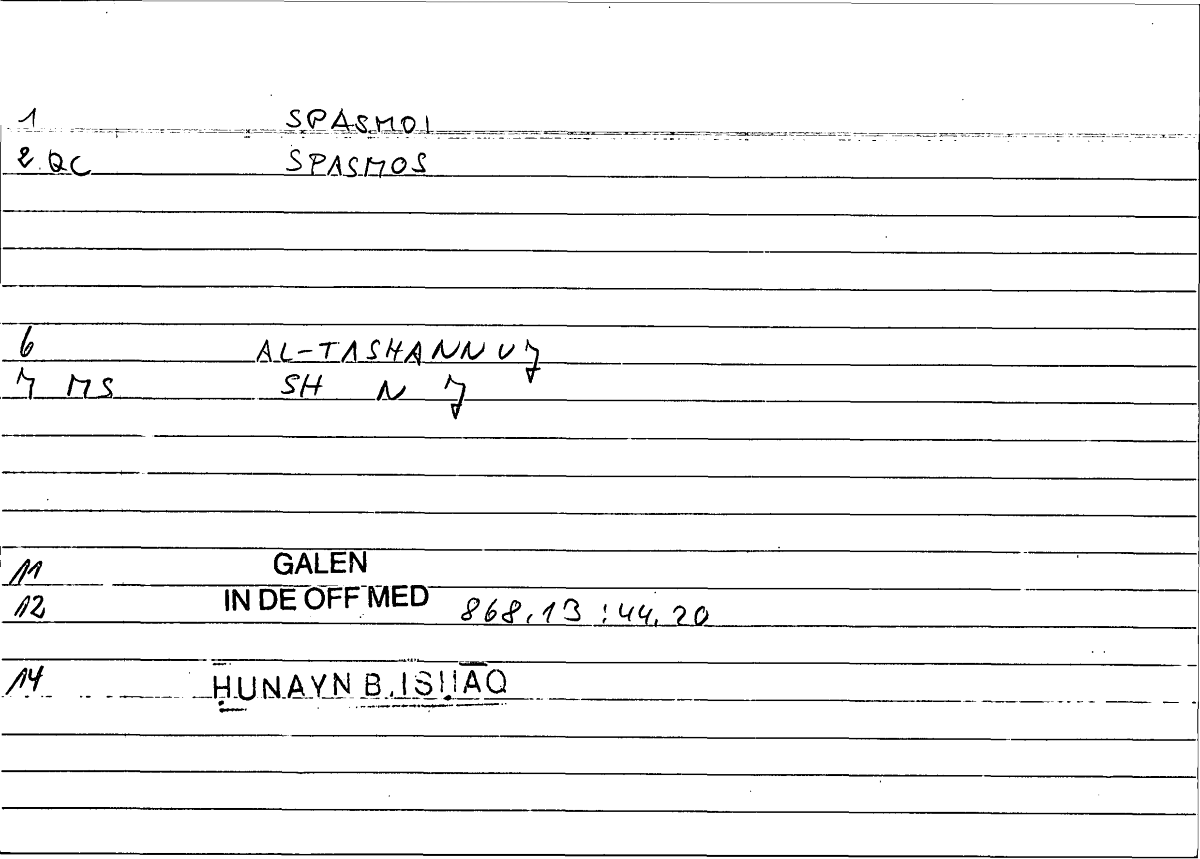 1 SPASMOI
2 QC SPASMOS
6 AL-TASHANNUJ
7 MS SH N J
11 GALEN
12 IN DE OFF MED 868,13 : 44,20
14 ḤUNAYN B. ISḤĀQ